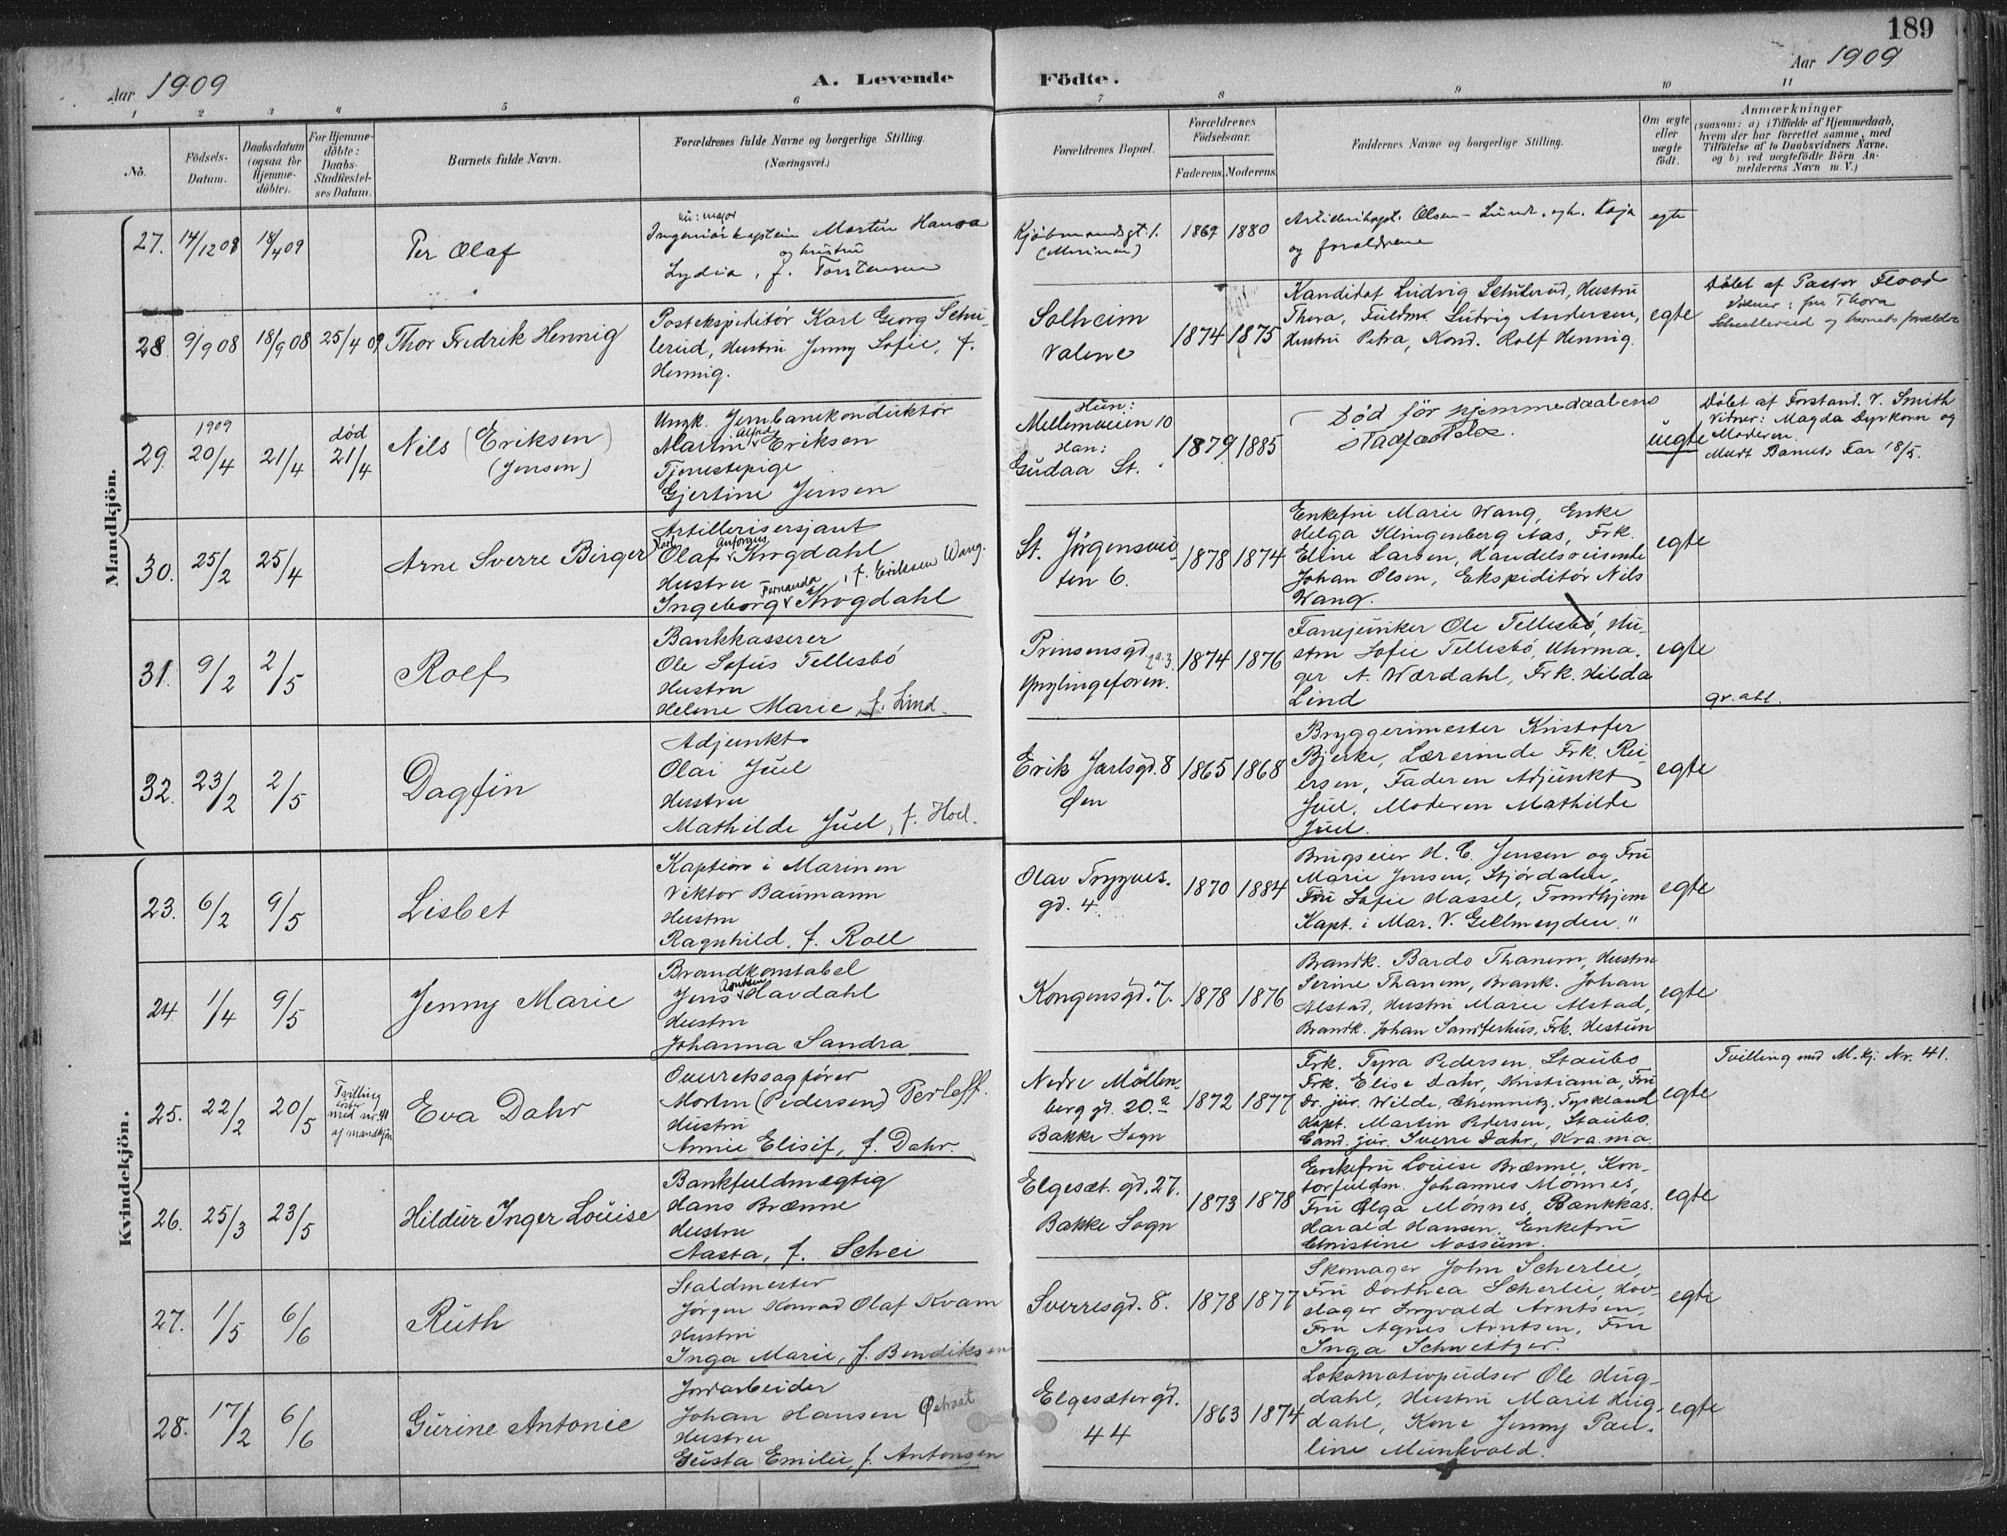 189
Aar 1909
A. Levende
Födte.
Aar 1909
1 2 3 4 5 6 7 8 9 10 11
No.
Födsels-
Datum.
Daabsdatum
(ogsaa for
Hjemme-
döbte).
For Hjemme-
döbte:
Daabs-
Stadfæstel-
ses Datum.
Barnets fulde Navn.
Forældrenes fulde Navne og borgerlige Stilling.
(Næringsvei.)
Forældrenes Bopæl.
Forældrenes
Födselsaar.
Faderens. Moderens.
Faddernes Navne og borgerlige Stilling.
Om ægte
eller
uægte
födt.
Anmærkninger
(saasom: a) i Tilfælde af Hjemmedaab,
hvem der har forrettet samme, med
Tilföielse af to Daabsvidners Navne.
og b) ved uægtefödte Börn An-
melderens Navn m. V.)
Mandkjön.
27. 14/12 08 18/4 09
Per Olaf
nu: major
Ingeniørkaptein Martin Hansa
og hustru
Lydia, f. Torstensen
Kjøbmandsgt. 1.
1869 1880
Olsen - Lund
og forældrene
egte
28. 9/9 08 18/9 08 25/4 09
Thor Fredrik Hennig
Postekspeditör Karl Georg Schu-
lerud, Hustru Jenny Sofie, f.
Hennig.
Solheim
Valene
1874 1875
Kandidat Ludvig Schulerud, Hustru
Thora, Fuldm. Ludvig Andersen,
Hustru Petra, Kond. Rolf Hennig.
egte
Döbt af Pastor Flood
Vidner: fru Thora
Schullerud og barnets forældre
29. 1909 20/4 21/4 død 21/4
Nils (Eriksen)
(Jensen)
Ungk. Jernbanekonduktör
Martin Alfred Eriksen
Tjenestepige
Gjertine Jensen
Hun:
Mellemveien 10
Han:
Gudaa St.
1879 1885
Död för hjemmedaabens
stadfæstelse.
uegte
Döbt af Forstand. V. Smith
Vidner: Magda Dyrkorn og
Moderen.
Medt Barnets Far 18/5.
30. 25/2 25/4
Arne Sverre Birger
Artillerisersjant
Karl Olaf Krogdahl
Hustru
Ingeborg Fernanda Krogdahl, f. Eriksen Wang.
St. Jørgensvei-
ten 6.
1878 1874
Enkefru Marie Wang, Enke
Helga Klingenberg Aas, Frk.
Eline Larsen, Handelsreisende
Johan Olsen, Ekspeditör Nils
Wang.
egte
31. 9/2 2/5
Rolf
Bankkasserer
Ole Sofus Tellesbö
Hustru
Helene Marie, f. Lind.
Prinsensgd. 2a.3.
Ynglingeforen.
1874 1876
Fanejunker Ole Tellesbö, Hu-
stru Sofie Tellesbö, Uhrma-
ger A. Wærdahl, Frk. Hilda
Lind
egte
gr. atl.
32. 23/2 2/5
Dagfin
Adjunkt
Olai Juel
Hustru
Mathilde Juel, f. Hoel.
Erik Jarlsgd. 8
Øen
1865 1868
Bryggerimester Kristofer
Bjerke, Lærerinde Frk. Rei-
ersen, Faderen Adjunkt
Juel, Moderen Mathilde
Juel.
egte
Kvindekjön.
23. 6/2 9/5
Lisbet
Kaptein i Marinen
Viktor Baumann
Hustru
Ragnhild, f. Roll
Olav Trygves.
gd. 4.
1870 1884
Brugseier H. C. Jensen og Fru
Marie Jensen, Stjördalen,
Fru Sofie Hassel, Trondhjem
Kapt. i Mar. V. Gellmeyden. "
egte
24. 1/4 9/5
Jenny Marie
Brandkonstabel
Jens Arntsen Havdahl
Hustru
Johanna Sandra
Kongensgd. 7.
1878 1876
Brandk. Bardo Thanem, Hustru
Serine Thanem, Brank. Johan
Alstad, Hustru Marie Alstad,
Brandk. Johan Sandferhus, Frk. Hestun
egte
25. 22/2 20/5
Tvilling
med nr. 41
af mandkjön
Eva Dahr
Overretssagförer
Morten (Pedersen) Perleff.
Hustru
Annie Elisif, f. Dahr.
Nedre Möllen-
berg gd. 20. a
Bakke Sogn
1872 1877
Frk. Tyra Pedersen, Staubo
Frk. Elise Dahr, Kristiania, Fru
Dr. jur. Wilde, Chemnitz, Tyskland
Kapt. Martin Pedersen, Staubo
Cand. jur. Sverre Dahr, Kra.nia.
egte
Tvilling med M. kj. Nr. 41.
26. 25/3 23/5
Hildur Inger Louise
Bankfuldmægtig
Hans Brænne
Hustru
Aasta, f. Schei
Elgesæt. gd. 27.
Bakke Sogn
1873 1878
Enkefru Louise Brænne, Kon-
torfuldm. Johannes Mönnes,
Fru Olga Mönnes, Bankkas.
Harald Hansen, Enkefru
Christine Nossum.
egte
27. 1/5 6/6
Ruth
Staldmester
Jörgen Konrad Olaf Kvam
Hustru
Inga Marie, f. Bendiksen
Sverresgd. 8.
1878 1877
Skomager John Scherlie,
Fru Dorthea Scherlie, Hov-
slager Ingvald Arntsen,
Fru Agnes Arntsen, Fru
Inga Schweitzer.
egte
28. 17/2 6/6
Gurine Antonie
Jordarbeider
Johan Hansen
Hustru
Gusta Emilie, f. Antonsen
Elgesætergd.
44
1863 1874
Lokomotivpudser Ole Hug-
dahl, Hustru Marit Hug-
dahl, Kone Jenny Pau-
line Munkvold.
egte